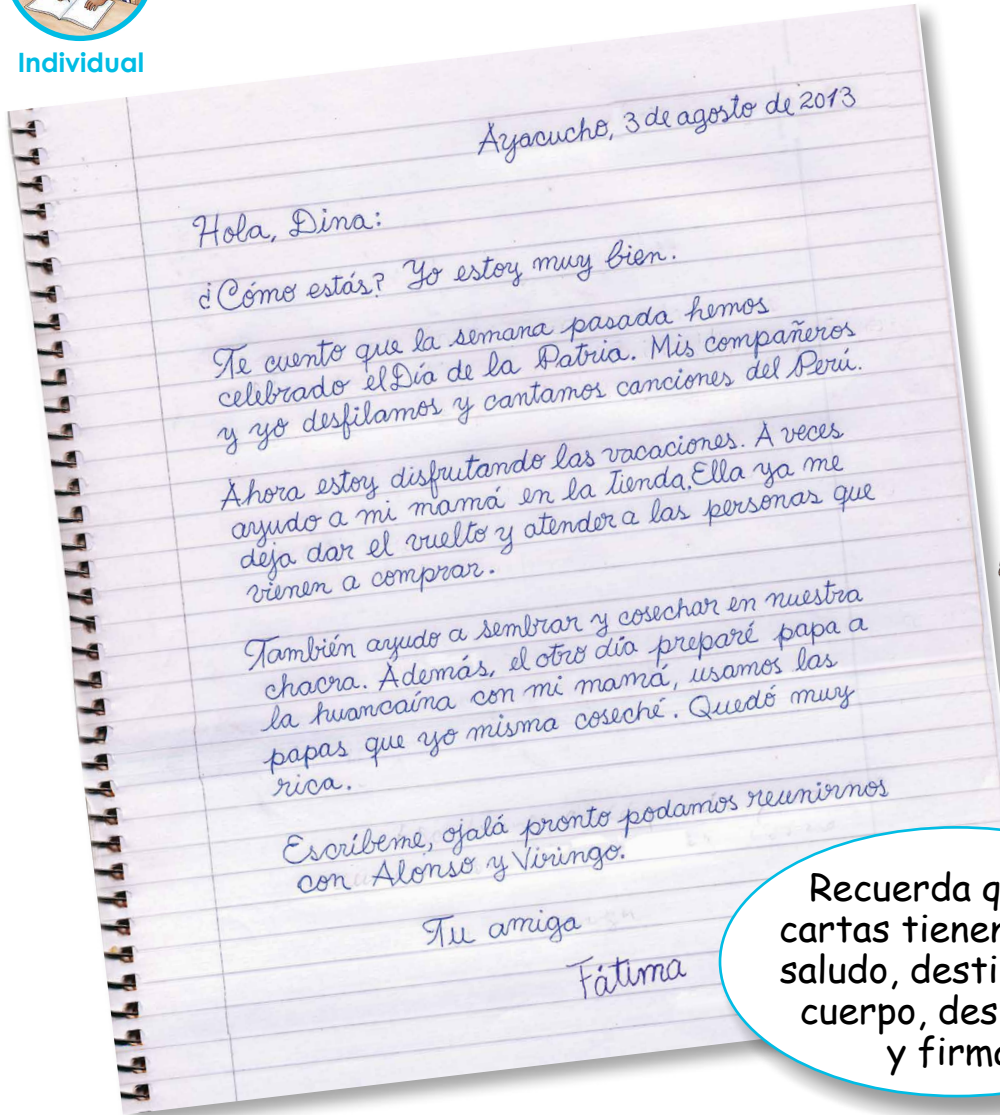 Individual
Ayacucho, 3 de agosto de 2013
Hola, Dina:
¿Cómo estás? Yo estoy muy bien.
Te cuento que la semana pasada hemos
celebrado el Día de la Patria. Mis compañeros
y yo desfilamos y cantamos canciones del Perú.
Ahora estoy disfrutando las vacaciones. A veces
ayudo a mi mamá en la tienda. Ella ya me
deja dar el vuelto y atender a las personas que
vienen a comprar.
También ayudo a sembrar y cosechar en nuestra
chacra. Además, el otro día preparé papa a
la huancaína con mi mamá, usamos las
papas que yo misma coseché. Quedó muy
rica.
Escríbeme, ojalá pronto podamos reunirnos
con Alonso y Viringo.
Tu amiga
Fátima
Recuerda q
cartas tiene
saludo, desti
cuerpo, des
y firm